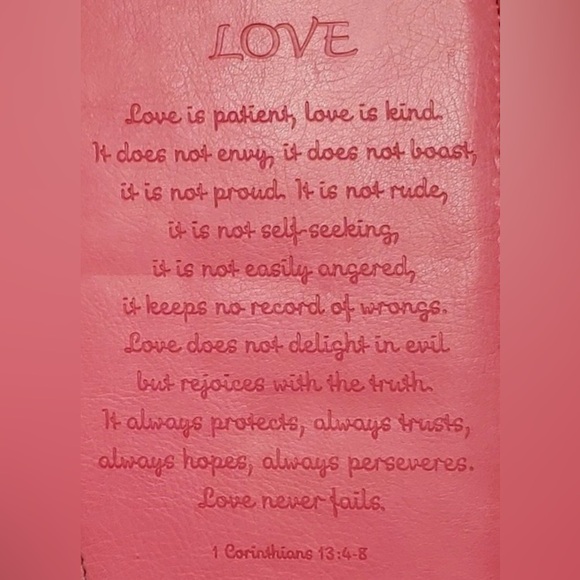 LOVE
Love is patient, love is kind.
It does not envy, it does not boast,
it is not proud. It is not rude,
it is not self-seeking,
it is not easily angered,
it keeps no record of wrongs.
Love does not delight in evil
but rejoices with the truth.
It always protects, always trusts,
always hopes, always perseveres.
Love never fails.
1 Corinthians 13:4-8